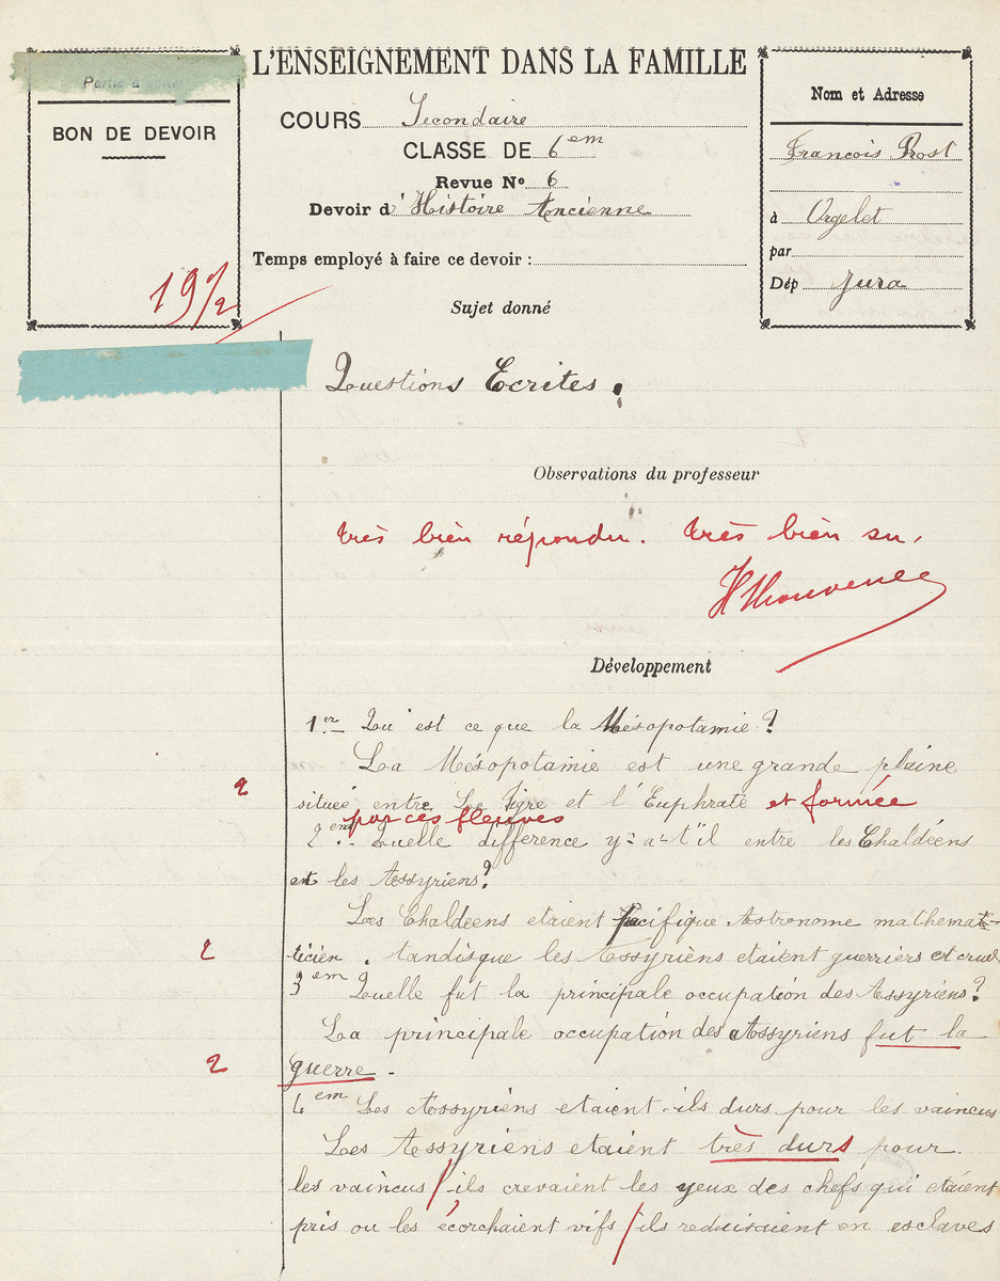 Partie à coller
BON DE DEVOIR
19 1/2
L'ENSEIGNEMENT DANS LA FAMILLE
COURS Secondaire
CLASSE DE 6em
Revue No 6
Devoir d'Histoire Ancienne
Temps employé à faire ce devoir :
Nom et Adresse
Francois Prost
à Orgelet
par
Dép Jura
Sujet donné
Questions Ecrites.
Observations du professeur
très bien répondu. très bien su.
Développement
1er Qu'est ce que la Mésopotamie ?
La Mésopotamie est une grande plaine
2
située entre Le Tigre et l'Euphrate et formée
par ces fleuves
2em Quelle difference y-a-t'il entre les Chaldéens
et les Assyriens ?
Les Chaldéens etaient pacifique Astronome mathemat-
2
ticien. tandisque les Assyriens etaient guerriers et cruel
3em Quelle fut la principale occupation des Assyriens ?
La principale occupation des Assyriens fut la
2
guerre.
4em Les Assyriens etaient-ils durs pour les vaincus
Les Assyriens etaient très durs pour
les vaincus / ils crevaient les yeux des chefs qui etaient
pris ou les écorchaient vifs / ils reduisaient en esclaves